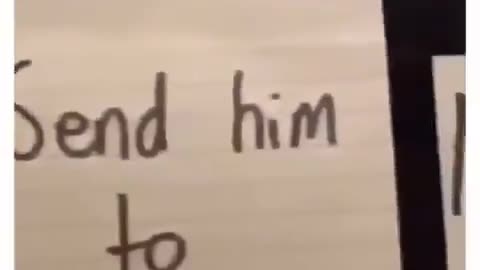 Send him
to